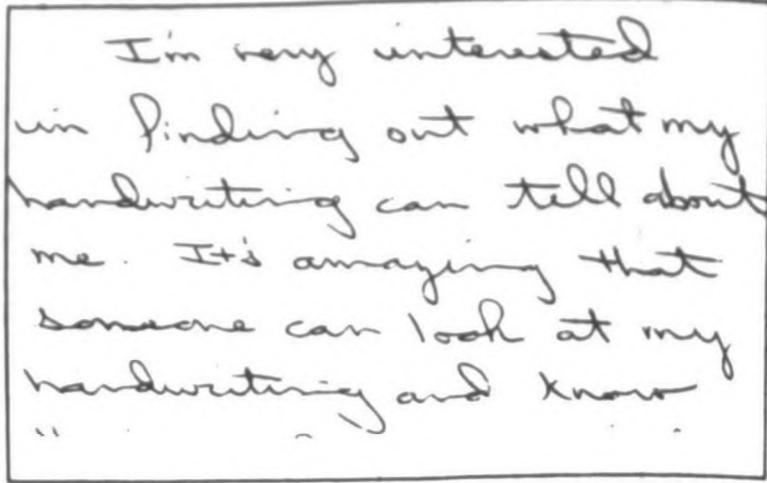 I'm very interested
in finding out what my
handwriting can tell about
me. It's amazing that
someone can look at my
handwriting and know